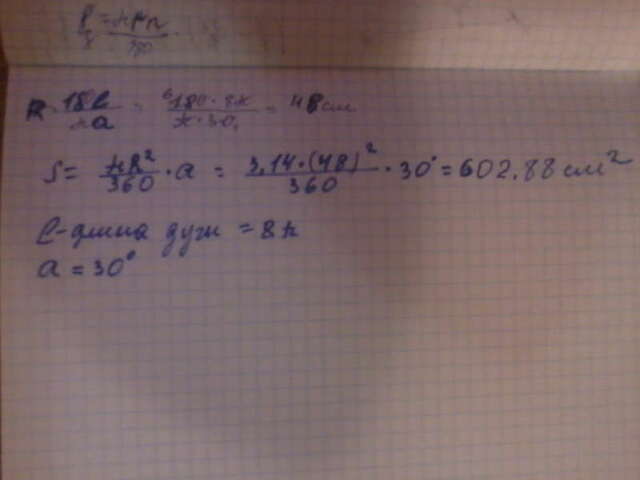 R = 18l/πa = 180·8π/π·30 = 48 см
S = πR²/360 · a = 3,14·(48)²/360 · 30° = 602,88 см²
l - длина дуги = 8π
a = 30°